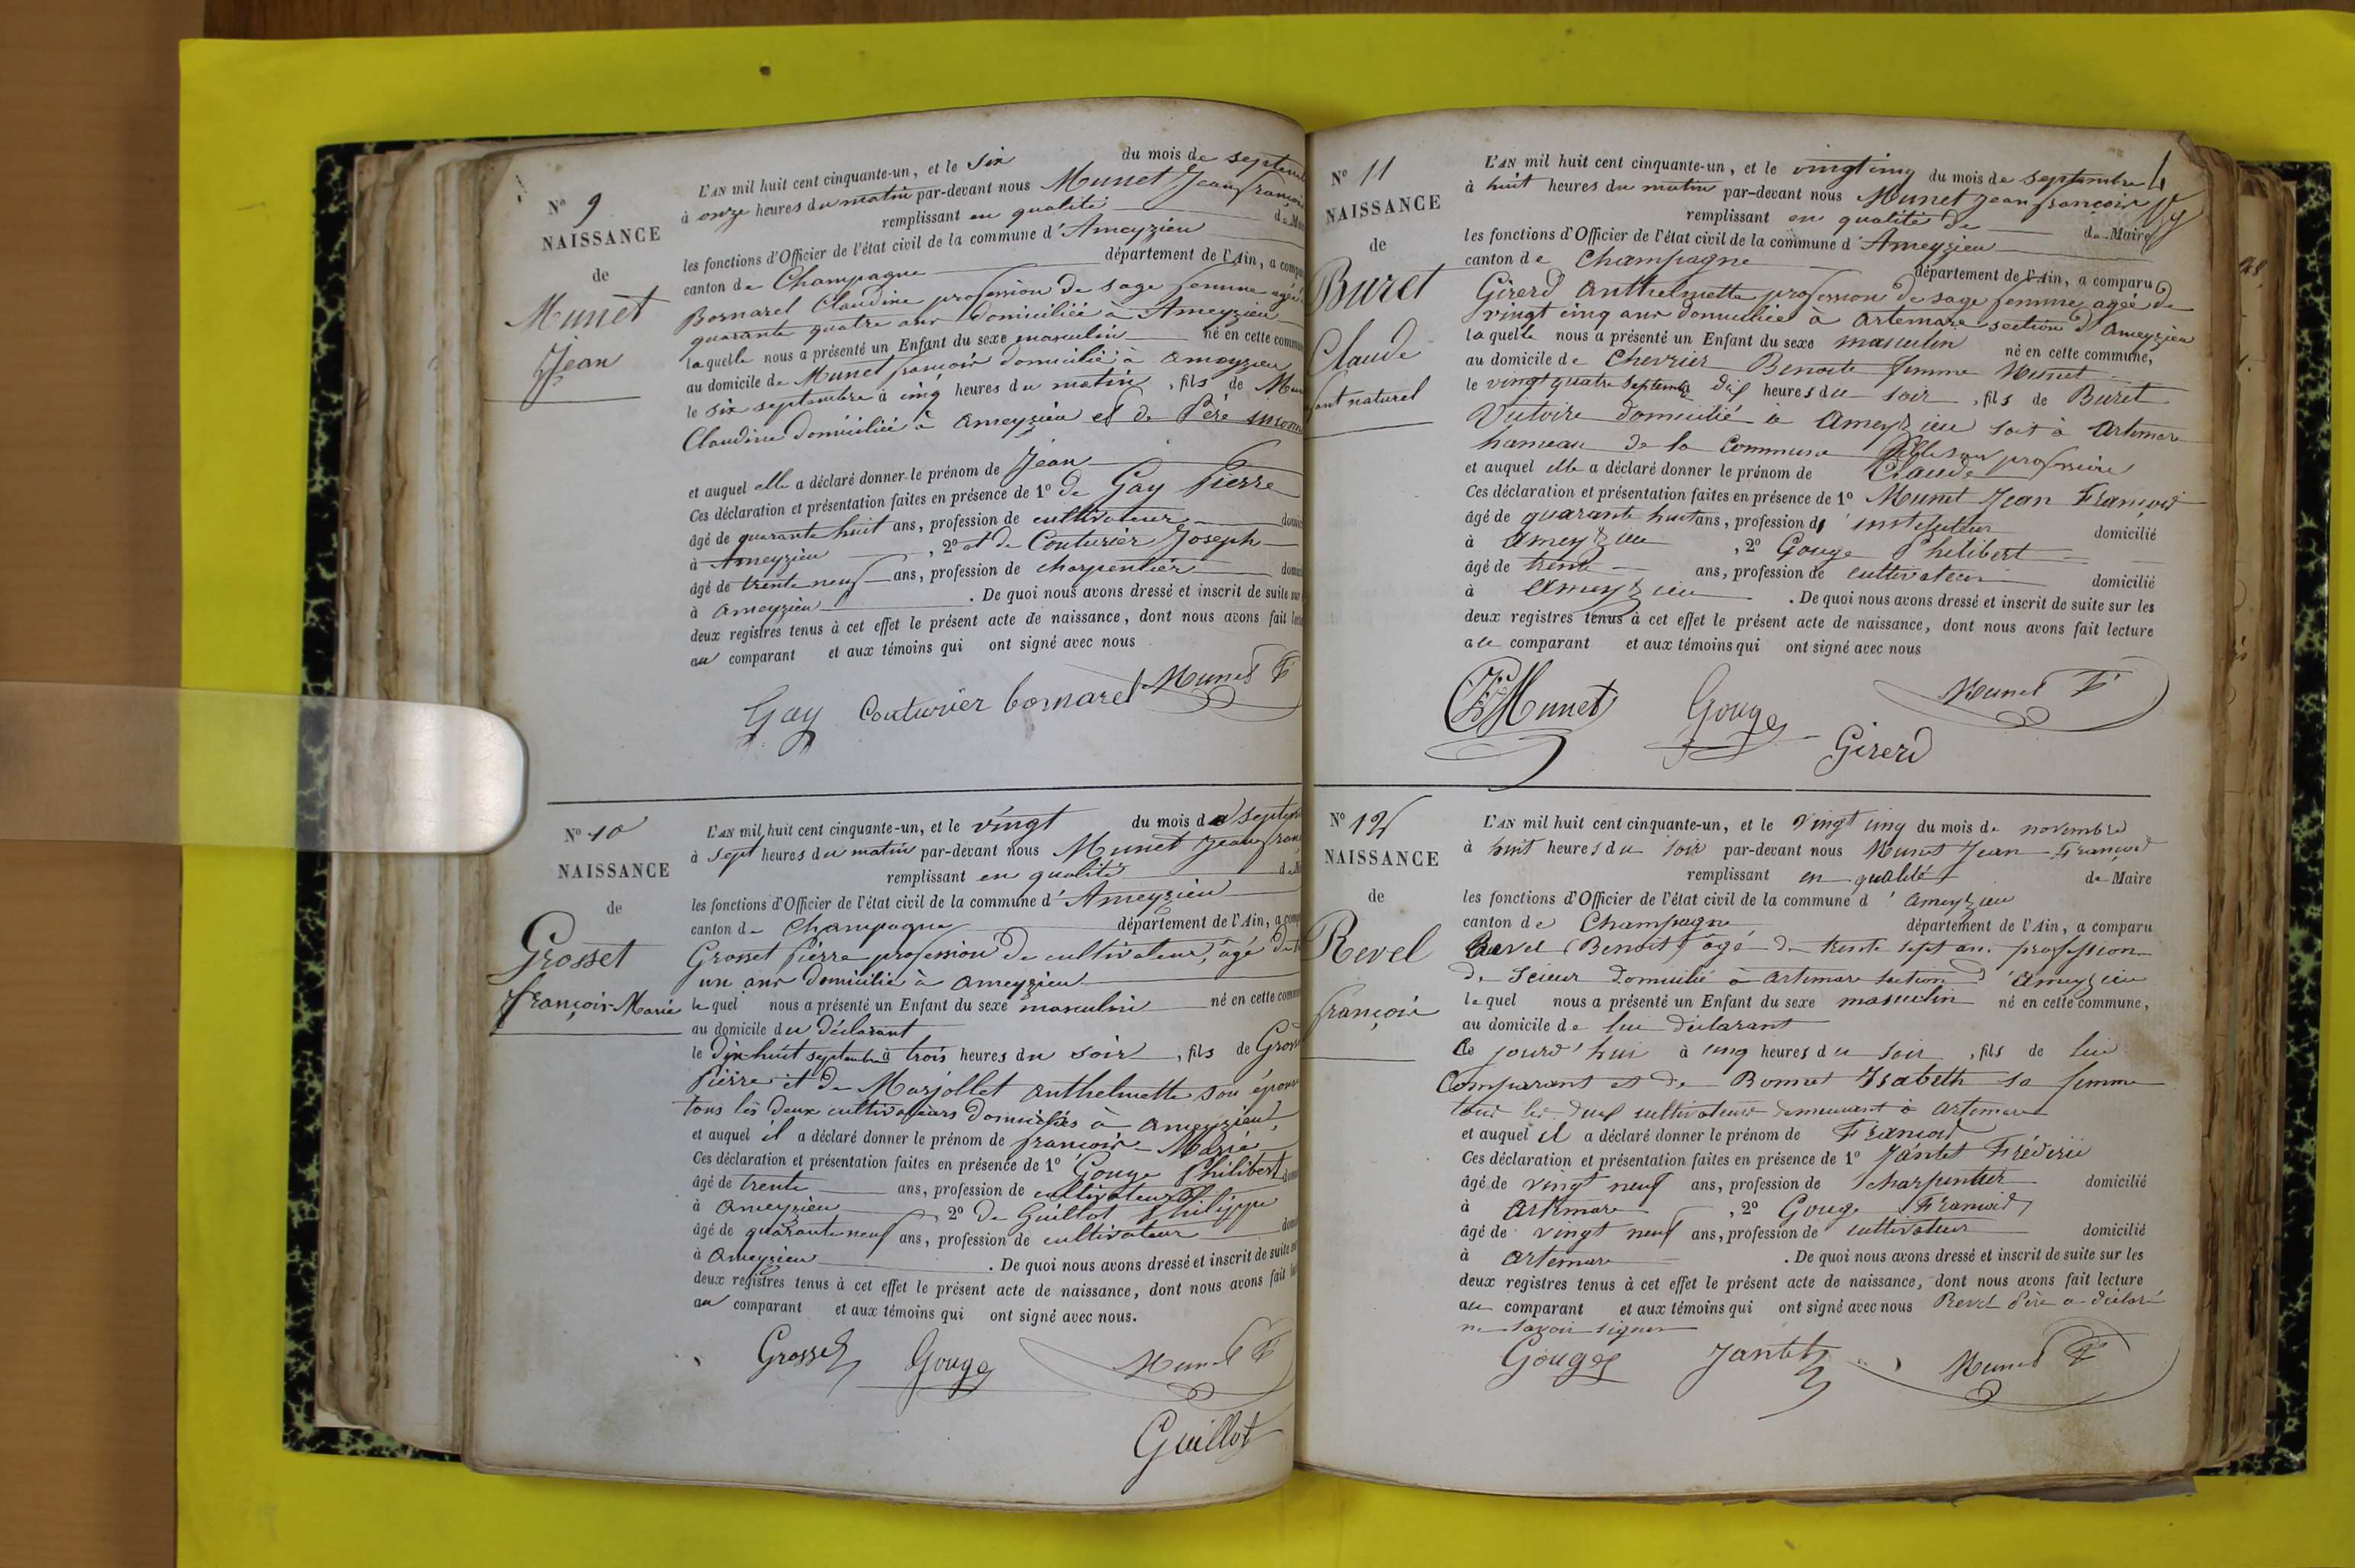 N° 9
NAISSANCE
de
Munet
Jean
L'AN mil huit cent cinquante-un, et le Six du mois de septemb
à onze heures du matin par-devant nous Munet Jean françois
remplissant en qualité de M
les fonctions d'Officier de l'état civil de la commune d'Ameyzieu
canton de Champagne département de l'Ain, a compa
Bornarel Claudine profession de sage femme agée
quarante quatre ans domiciliée à Ameyzieu
laquelle nous a présenté un Enfant du sexe masculin né en cette commu
au domicile de Munet françois domicilié à Ameyzieu
le six septembre à cinq heures du matin, fils de Mun
Claudine domiciliée à Ameyzieu et de Père inconn
et auquel elle a déclaré donner le prénom de Jean
Ces déclaration et présentation faites en présence de 1° de Gay Pierre
âgé de quarante huit ans, profession de cultivateur domi
à Ameyzieu, 2° et de Couturier Joseph
âgé de trente neuf ans, profession de charpentier domi
à Ameyzieu. De quoi nous avons dressé et inscrit de suite sur
deux registres tenus à cet effet le présent acte de naissance, dont nous avons fait lect
au comparant et aux témoins qui ont signé avec nous
Gay Couturier bornarel Munet F
N° 10
NAISSANCE
de
Grosset
françois-Marie
L'AN mil huit cent cinquante-un, et le vingt du mois de septem
à sept heures du matin par-devant nous Munet Jean fran
remplissant en qualité de M
les fonctions d'Officier de l'état civil de la commune d'Ameyzieu
canton de Champagne département de l'Ain, a comp
Grosset Pierre profession de cultivateur, âgé de
un ans domicilié à Ameyzieu
lequel nous a présenté un Enfant du sexe masculin né en cette commu
au domicile du déclarant
le dix huit septembre à trois heures du soir, fils de Gross
Pierre et de Marjollet Anthelmette son épouse
tous les deux cultivateurs domiciliés à Ameyzieu,
et auquel il a déclaré donner le prénom de françois-Marie
Ces déclaration et présentation faites en présence de 1° Gouge Philibert
âgé de trente ans, profession de cultivateur domi
à Ameyzieu, 2° de Guillot Philippe
âgé de quarante neuf ans, profession de cultivateur domi
à Ameyzieu. De quoi nous avons dressé et inscrit de suite sur
deux registres tenus à cet effet le présent acte de naissance, dont nous avons fait lect
au comparant et aux témoins qui ont signé avec nous.
Grosset Gouge Munet F
Guillot
N° 11
NAISSANCE
de
Buret
Claude
fant naturel
L'AN mil huit cent cinquante-un, et le vingt cinq du mois de septembre
à huit heures du matin par-devant nous Munet Jean françois
remplissant en qualité de de Maire
les fonctions d'Officier de l'état civil de la commune d'Ameyzieu
canton de Champagne département de l'Ain, a comparu
Girerd Anthelmette profession de sage femme, agée de
vingt cinq ans domiciliée à Artemare section d'Ameyzieu
laquelle nous a présenté un Enfant du sexe masculin né en cette commune,
au domicile de Chevrier Benoite femme Munet
le vingt quatre septembre dix heures du soir, fils de Buret
Victoire domicilié à Ameyzieu soit à Artemare
hameau de la Commune fille sans profession
et auquel elle a déclaré donner le prénom de Claude
Ces déclaration et présentation faites en présence de 1° Munet Jean François
âgé de quarante huit ans, profession d'instituteur domicilié
à Ameyzieu, 2° Gouge Philibert
âgé de trente ans, profession de cultivateur domicilié
à Ameyzieu. De quoi nous avons dressé et inscrit de suite sur les
deux registres tenus à cet effet le présent acte de naissance, dont nous avons fait lecture
au comparant et aux témoins qui ont signé avec nous
Munet Gouge Munet F
Girerd
N° 12
NAISSANCE
de
Revel
françois
L'AN mil huit cent cinquante-un, et le vingt cinq du mois de novembre
à huit heures du soir par-devant nous Munet Jean François
remplissant en qualité de Maire
les fonctions d'Officier de l'état civil de la commune d'Ameyzieu
canton de Champagne département de l'Ain, a comparu
Revel Benoit âgé de trente sept ans profession
de scieur domicilié à Artemare section d'Ameyzieu
lequel nous a présenté un Enfant du sexe masculin né en cette commune,
au domicile de lui déclarant
Ce jourd'hui à cinq heures du soir, fils de lui
Comparant et de Bonnet Isabeth sa femme
tous les deux cultivateurs demeurant à Artemare
et auquel il a déclaré donner le prénom de François
Ces déclaration et présentation faites en présence de 1° Jantet Fréderic
âgé de vingt neuf ans, profession de charpentier domicilié
à Artemare, 2° Gouge François
âgé de vingt neuf ans, profession de cultivateur domicilié
à Artemare. De quoi nous avons dressé et inscrit de suite sur les
deux registres tenus à cet effet le présent acte de naissance, dont nous avons fait lecture
au comparant et aux témoins qui ont signé avec nous Revel Père a déclaré
ne savoir signer
Gouge Jantet Munet F